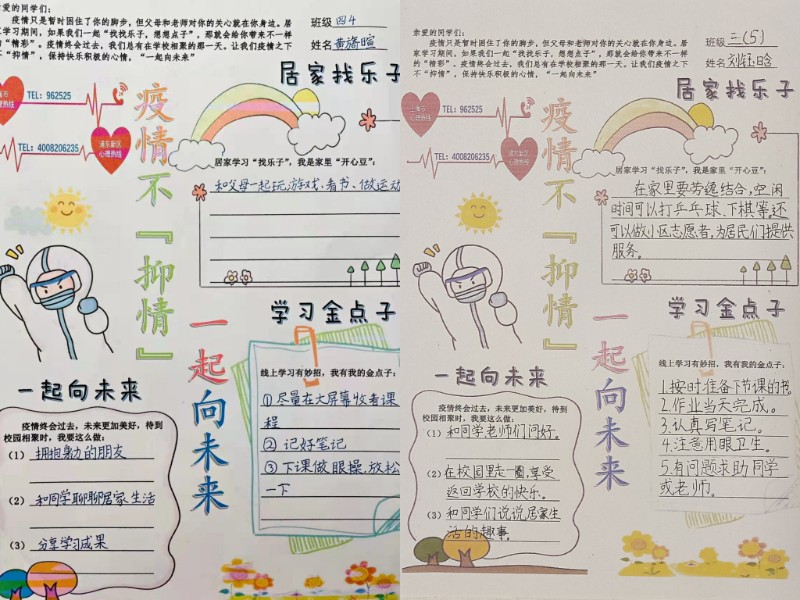 亲爱的同学们：
疫情只是暂时困住了你的脚步，但父母和老师对你的关心就在你身边。居
家学习期间，如果我们一起“找找乐子，想想点子”，那就会给你带来不一样
的“精彩”。疫情终会过去，我们总有在学校相聚的那一天。让我们疫情之下
不“抑情”，保持快乐积极的心情，“一起向未来”
班级 四4
姓名
居家找乐子
TEL: 962525
心理热线
TEL: 4008206235
浦东新区
心理热线
疫情不『抑情』
居家学习“找乐子”，我是家里“开心豆”：
和父母一起玩游戏、看书、做运动
学习金点子
一起向未来
线上学习有妙招，我有我的金点子：
①尽量在大屏幕收看课
程
②记好笔记
③下课做眼操，放松
一下
一起向未来
疫情终会过去，未来更加美好，待到
校园相聚时，我要这么做：
(1) 拥抱身边的朋友
(2) 和同学聊聊居家生活
(3) 分享学习成果
亲爱的同学们：
疫情只是暂时困住了你的脚步，但父母和老师对你的关心就在你身边。居
家学习期间，如果我们一起“找找乐子，想想点子”，那就会给你带来不一样
的“精彩”。疫情终会过去，我们总有在学校相聚的那一天。让我们疫情之下
不“抑情”，保持快乐积极的心情，“一起向未来”
班级 三(5)
姓名 刘钰晗
居家找乐子
TEL: 962525
心理热线
TEL: 4008206235
浦东新区
心理热线
疫情不『抑情』
居家学习“找乐子”，我是家里“开心豆”：
在家里要劳逸结合，空闲
时间可以打乒乓球、下棋等，还
可以做小区志愿者，为居民们提供
服务。
学习金点子
一起向未来
线上学习有妙招，我有我的金点子：
1.按时准备下节课的书。
2.作业当天完成。
3.认真写笔记。
4.注意用眼卫生。
5.有问题求助同学
或老师。
一起向未来
疫情终会过去，未来更加美好，待到
校园相聚时，我要这么做：
(1) 和同学老师们问好。
(2) 在校园里走一圈，享受
返回学校的快乐。
(3) 和同学们说说居家生
活的趣事。